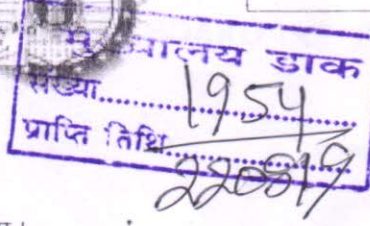 यालय डाक
संख्या.......... 1954
प्राप्ति तिथि.......... 220819